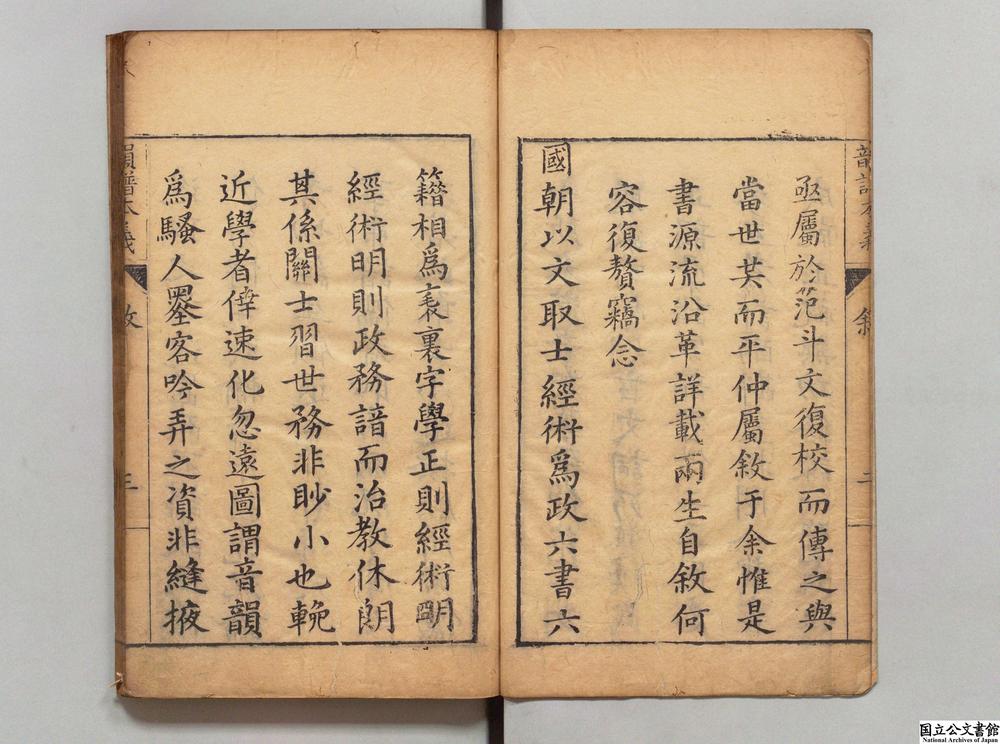 亟屬於笵斗文復校而傳之與
當世共而平仲屬敘于余惟是
書源流沿革詳載兩生自敘何
容復贅竊念
國朝以文取士經術爲政六書六
韻譜本義
敘
二
籍相爲表裏字學正則經術明
經術明則政務諳而治教休朗
其係關士習世務非眇小也輓
近學者倖速化忽遠圖謂音韻
爲騷人墨客吟弄之資非縫掖
韻譜本義
敘
三
国立公文書館
National Archives of Japan